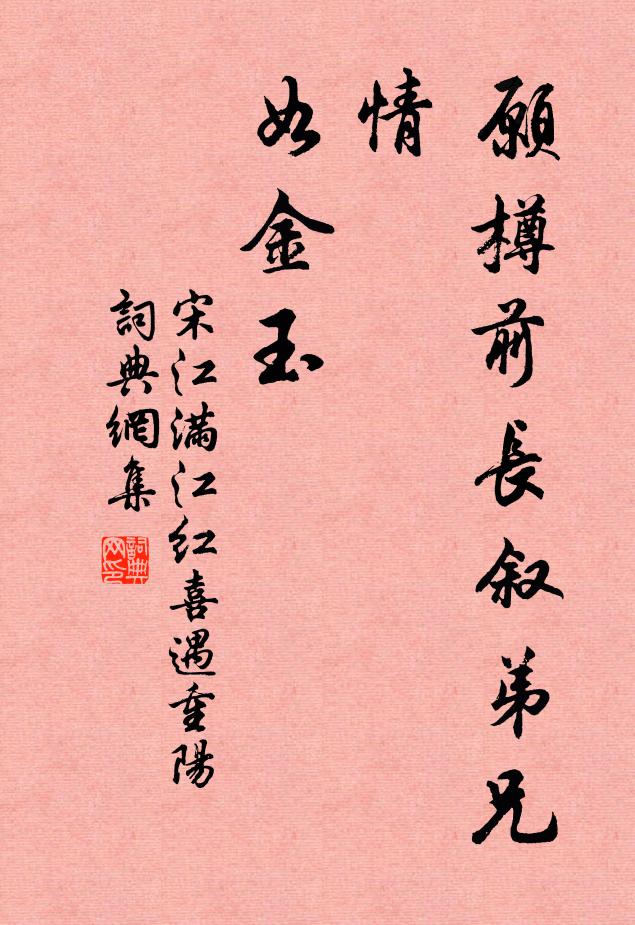 願樽前長叙弟兄
情
如金玉
宋江满江红喜遇重陽
詞典網集
詞典網印